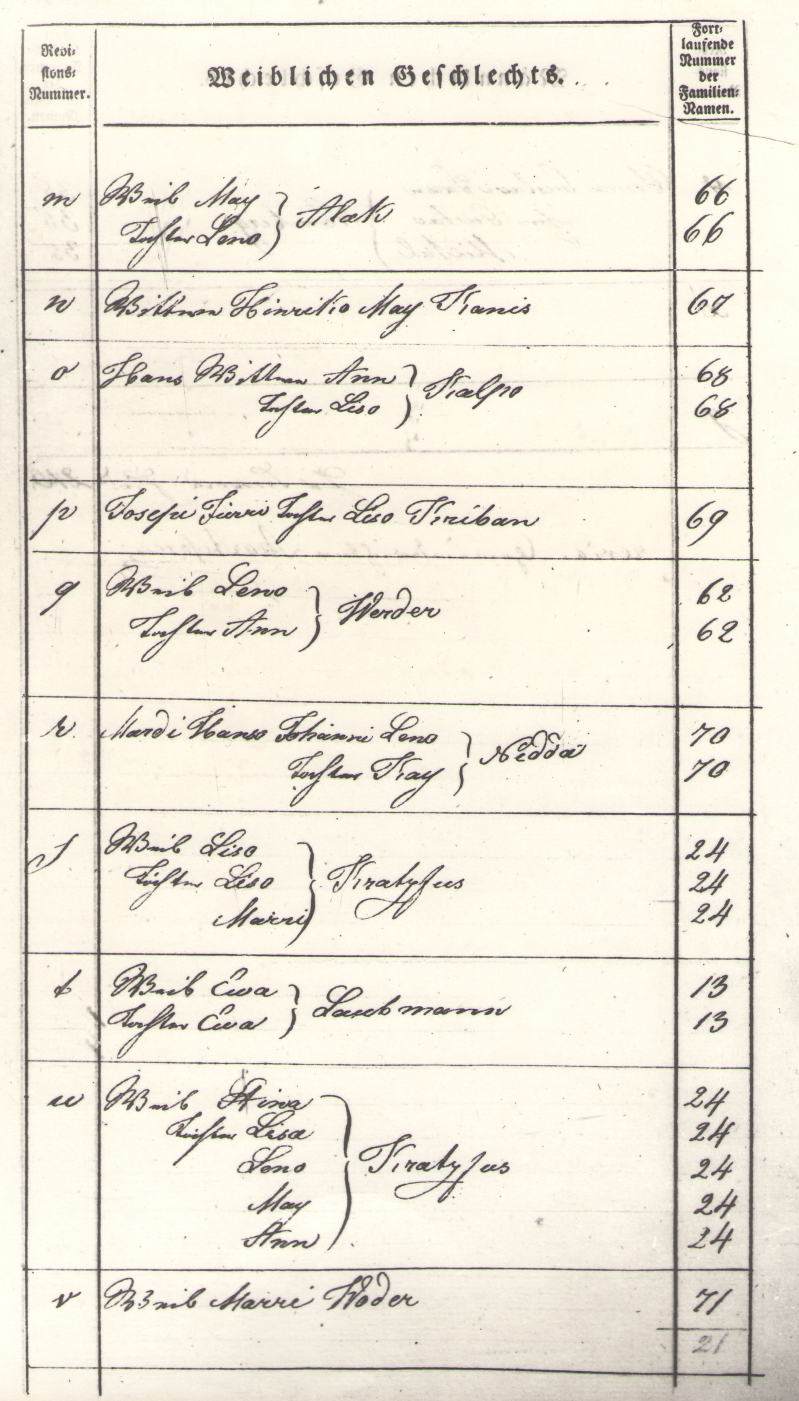 Revi-
sions-
Nummer.
Weiblichen Geschlechts.
Fort-
laufende
Nummer
der
Familien-
Namen.
m Weib May } Alak 66
Tochter Leno 66
n Wittwe Hinriko May Kanis 67
o Hans Wittwe Ann } Kalpo 68
Tochter Liso 68
p Josepi Jürri Tochter Liso Kriban 69
q Weib Leno } Werder 62
Tochter Ann 62
r. Mardi Hanso Johanni Leno } Nedda 70
Tochter Kay 70
s Weib Liso } 24
Töchter Liso 24
Marri 24
t Weib Ewa } Laubmann 13
Tochter Ewa 13
u Weib Stina } 24
Töchter Lisa 24
Leno 24
May 24
Ann 24
v Weib Marri Woder 71
21